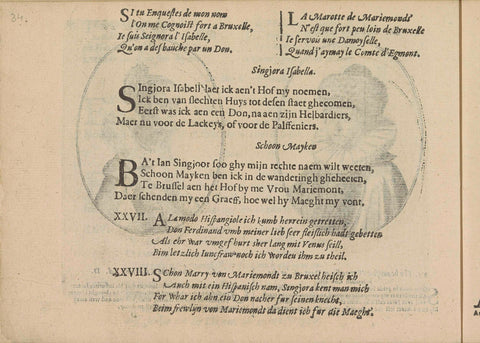 34.
SI tu Enquestes de mon nom
l'On me Cognoist fort a Bruxelle
Ie suis Seignora l'Isabelle,
Qu'on a desbauche par un Don.
LA Marotte de Mariemondt
N'est que fort peu loin de Bruxelle
Ie servois une Damoyselle,
Quand j'aymay le Comte d'Egmont.
Singjora Isabella.
SIngjora Isabell' laet ick aen't Hof my noemen,
Ick ben van slechten Huys tot desen staet ghecomen,
Eerst was ick aen een Don, na aen zijn Helbardiers,
Maer nu voor de Lackeys, of voor de Palffeniers.
Schoon Mayken
BA't Ian Singjoor soo ghy mijn rechte naem wilt weeten,
Schoon Mayken ben ick in de wanderingh gheheeten,
Te Brussel aen het Hof by me Vrou Mariemont,
Daer schenden my een Graeff, hoe wel hy Maeght my vont.
XXVII. A La modo Hispangiole ich kumb herrein getretten,
Don Ferdinand umb meiner lieb seer fleislich hadt gebetten
Als ehr war umgef hurt sher lang mit Venus seill,
Bim letzlich Iuncfraw noch ich worden ihm zu theil.
XXVIII. SChon Marry von Mariemondt zu Bruxel heisch ich
Auch mit ein Hispanisch nam, Singjora kent man mich
For Whar ich ahn ein Don nacher fur seinen knecht,
Beim frewlyn von Mariemondt da dient ich fur die Maeght.